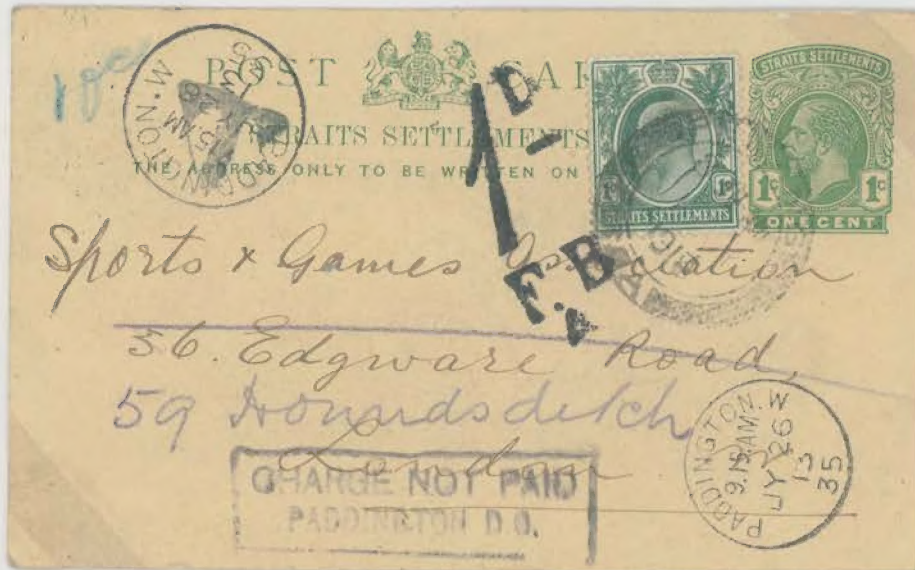 10c
POST CARD
STRAITS SETTLEMENTS
THE ADDRESS ONLY TO BE WRITTEN ON
PADDINGTON.W
JY 26
13
1D
F.B
1c 1c
STRAITS SETTLEMENTS
STRAITS SETTLEMENTS
1c 1c
ONE CENT
Sports & Games Association
36. Edgware Road,
59 Houndsditch
London
CHARGE NOT PAID
PADDINGTON D.O.
PADDINGTON.W
9.15AM
JY 26
13
35